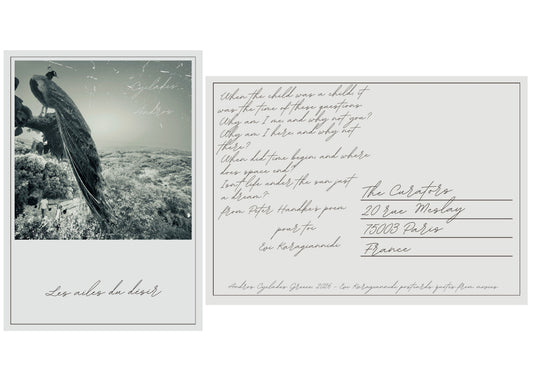 Cyclades
Andros
Les ailes du desir
When the child was a child it
was the time of these questions
Why am I me and why not you?
Why am I here and why not
there?
When did time begin and where
does space end?
Isn't life under the sun just
a dream?
from Peter Handke's poem
pour toi
Evi Karagiannidi
The Curators
20 rue Meslay
75003 Paris
France
Andros Cyclades Greece 2026 - Evi Karagiannidi postcards quotes from movies